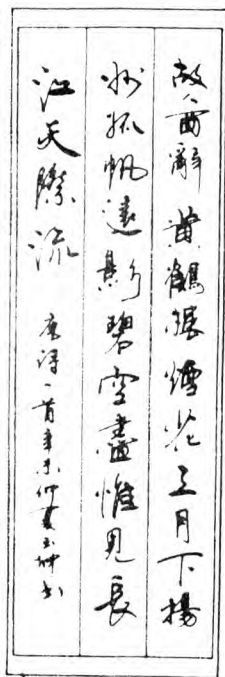 故人西辭黄鶴楼煙花三月下揚
州孤帆遠影碧空盡惟见長
江天際流 唐诗一首辛未仲夏玉坤书